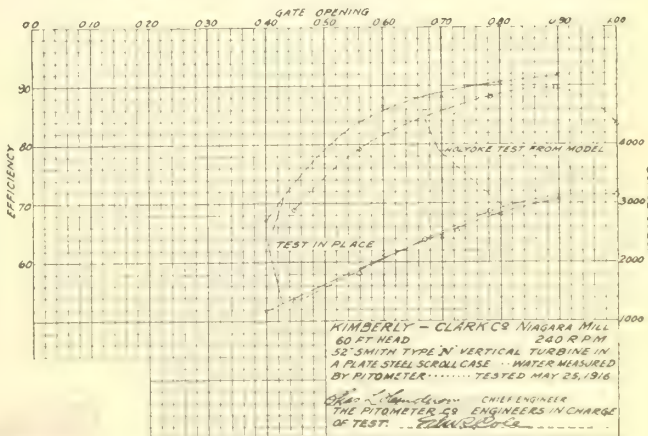 GATE OPENING
0.0 0.10 0.20 0.30 0.40 0.50 0.60 0.70 0.80 0.90 1.00
EFFICIENCY
90
80
70
60
4000
3000
2000
1000
HOLYOKE TEST FROM MODEL
TEST IN PLACE
KIMBERLY - CLARK CO NIAGARA MILL
60 FT HEAD 240 R P M
52" SMITH TYPE "N" VERTICAL TURBINE IN
A PLATE STEEL SCROLL CASE ·· WATER MEASURED
BY PITOMETER ······· TESTED MAY 25, 1916
CHIEF ENGINEER
THE PITOMETER CO ENGINEERS IN CHARGE
OF TEST.